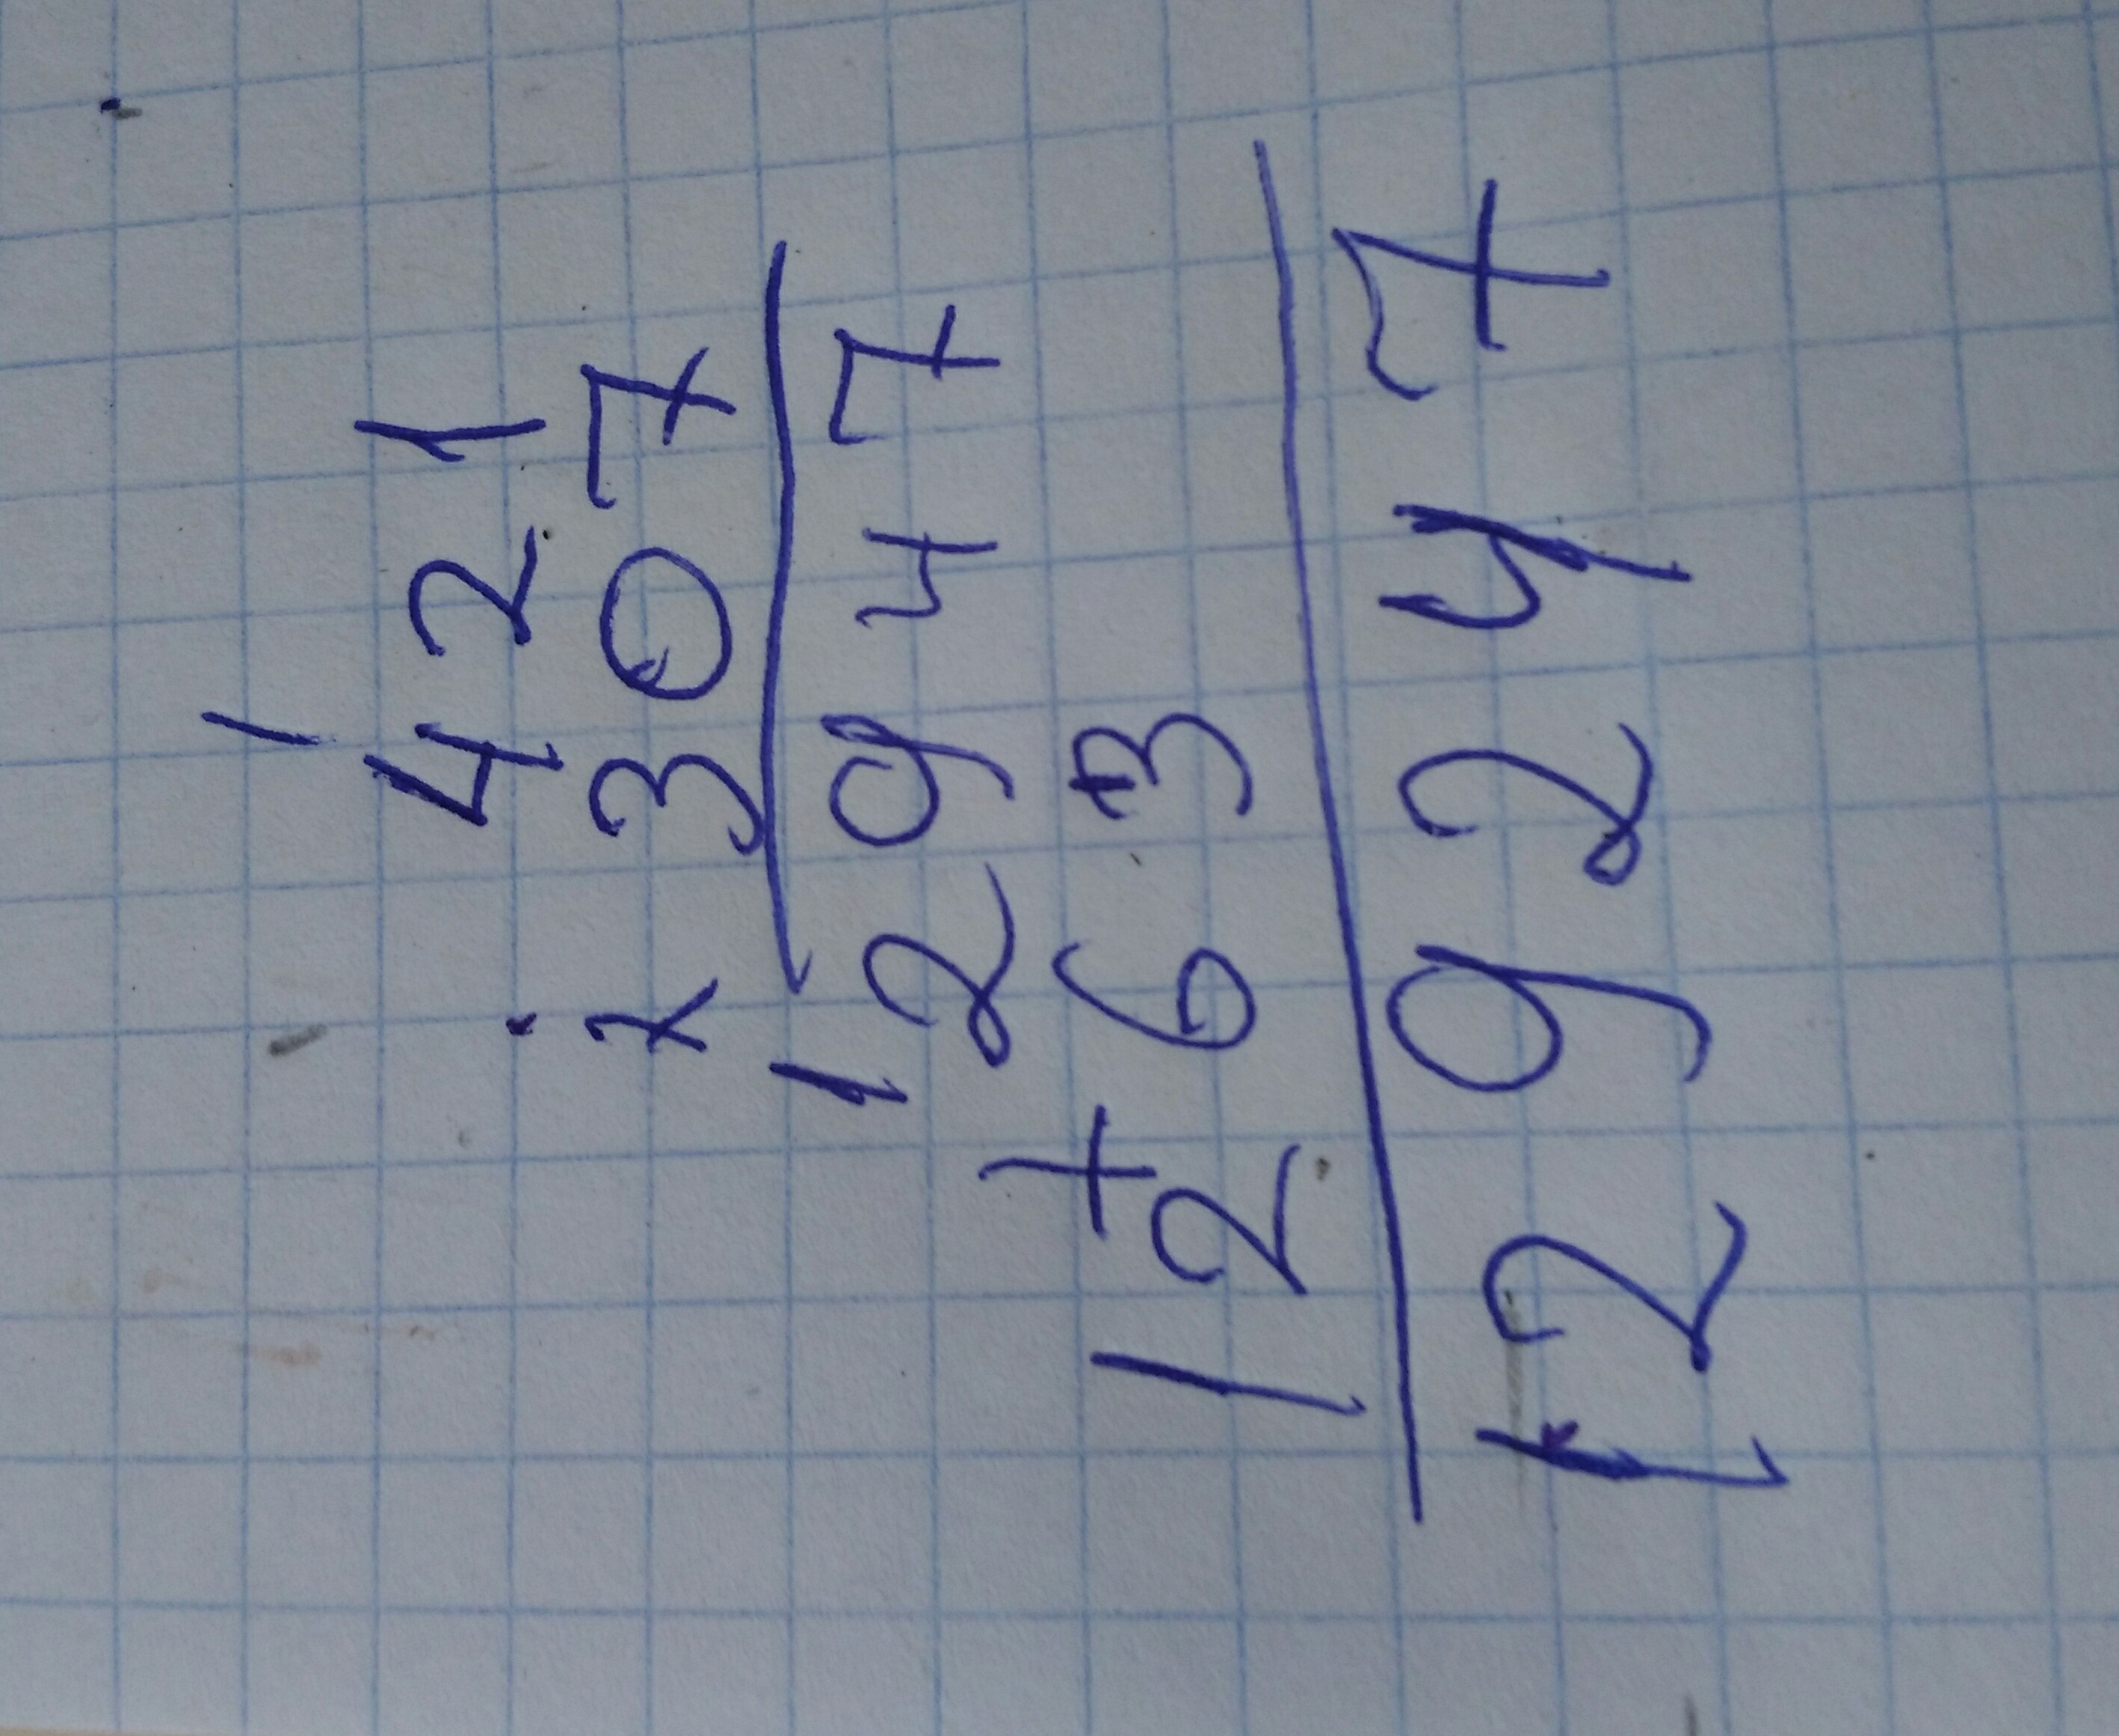 1
421
x 307
12947
+
1263
129247